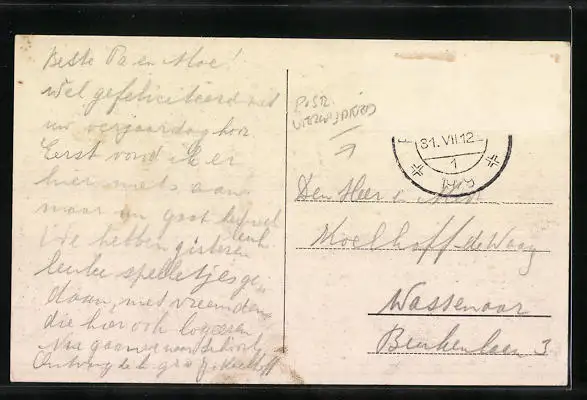 Beste Pa en Moe!
Wel gefeliciteerd met
uw verjaardag hoor.
Eerst vond ik er
hier niets aan
maar nu gaat het wel
We hebben gisteren
leuke spelletjes ge-
daan, met vreemden
die hier ook logeeren
Nu gaan we naar
Ontvang de
POSTZ.
31.VII.12
1
1919
Den Heer en Mevr
Moelhoff-de Waay
Wassenaar
Beukenlaan 3